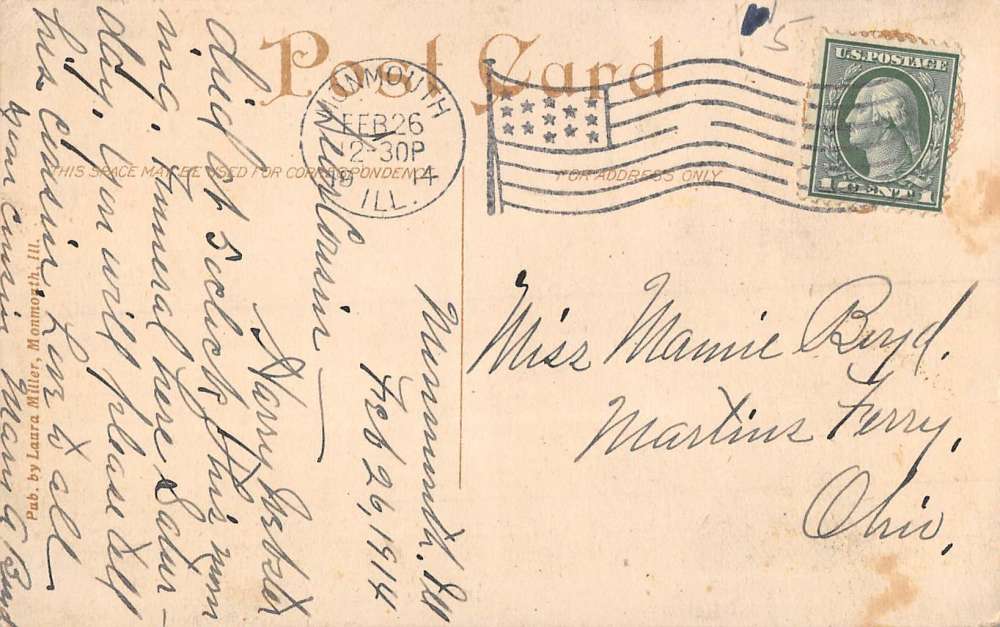 Post Card
THIS SPACE MAY BE USED FOR CORRESPONDENCE
FOR ADDRESS ONLY
MONMOUTH
FEB 26
12-30P
19 14
ILL.
U.S. POSTAGE
1 CENT 1
5
Miss Mamie Boyd.
Martins Ferry,
Ohio,
Monmouth. Ill
Feb 26, 1914
Dear Cousin
Harry Webster
died at 5 oclock this morn
ing. Funeral here Satur-
day, Guss will please tell
his cousin. Love to all
your cousin Mary G Boyd
Pub. by Laura Miller, Monmouth, Ill.